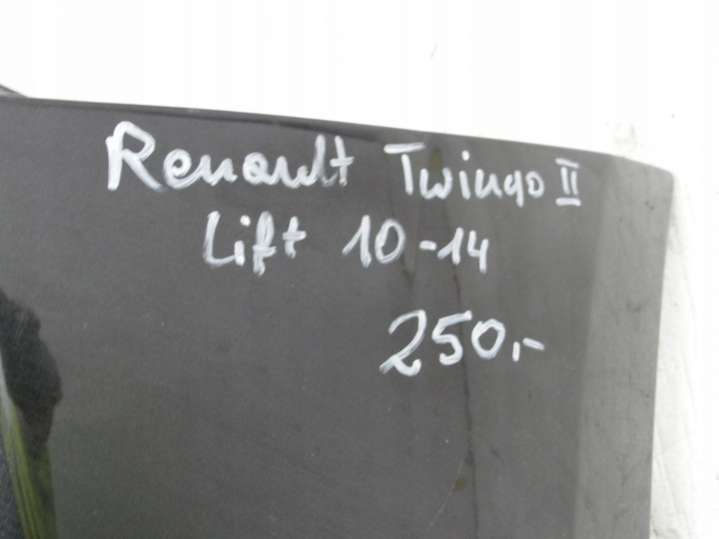 Renault Twingo II
Lift 10-14
250,-